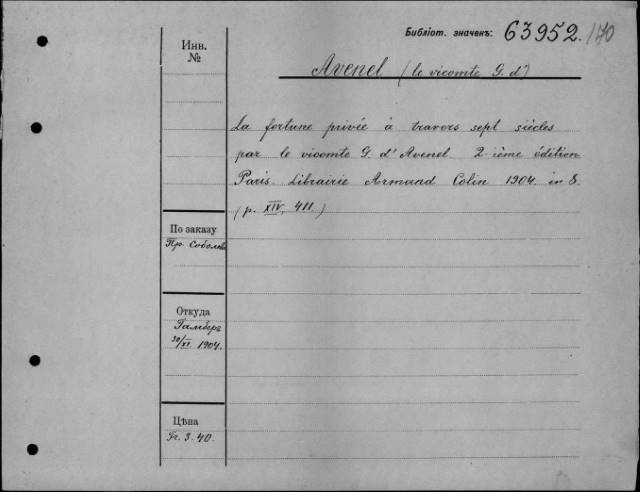 Библіот. значенъ: 63952. 170
Инв.
№
Avenel (le vicomte G. d')
La fortune privée à travers sept siècles
par le vicomte G. d'Avenel 2-ième édition
Paris. Librairie Armand Colin 1904. in 8.
(p. XIV, 411.)
По заказу
Пр. Соболева
Откуда
Гамберъ
30/XI. 1904.
Цѣна
Fr. 3.40.